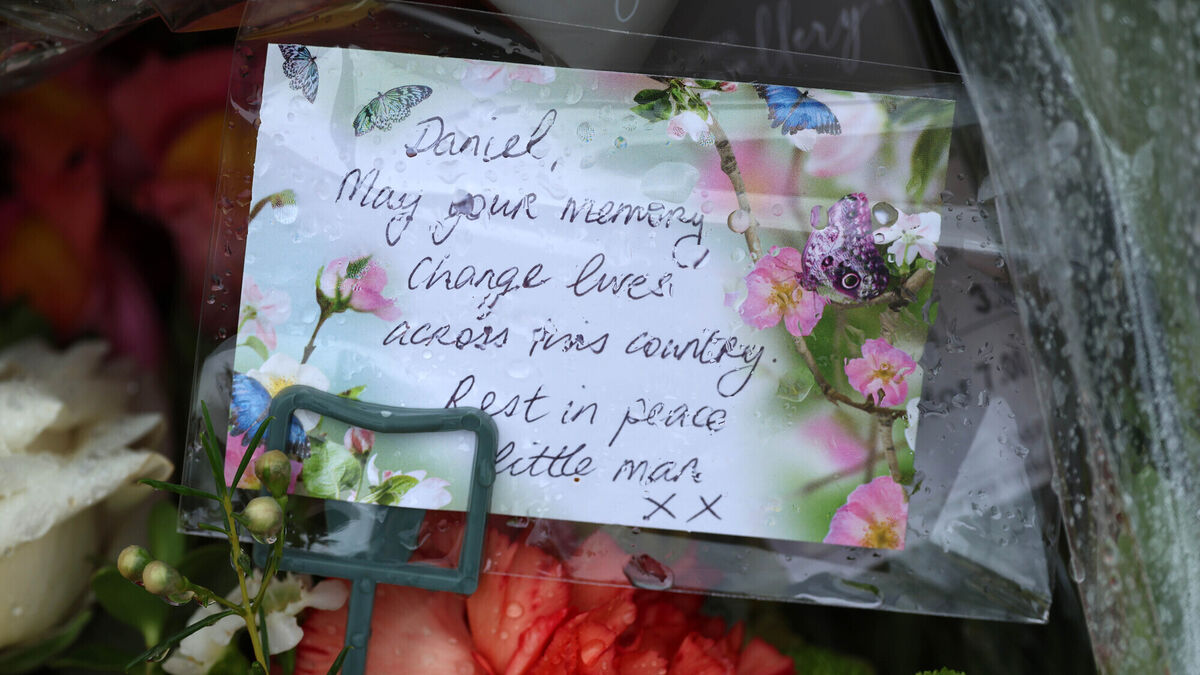 Daniel,
May your memory
change lives
across this country.
Rest in peace
little man
x x